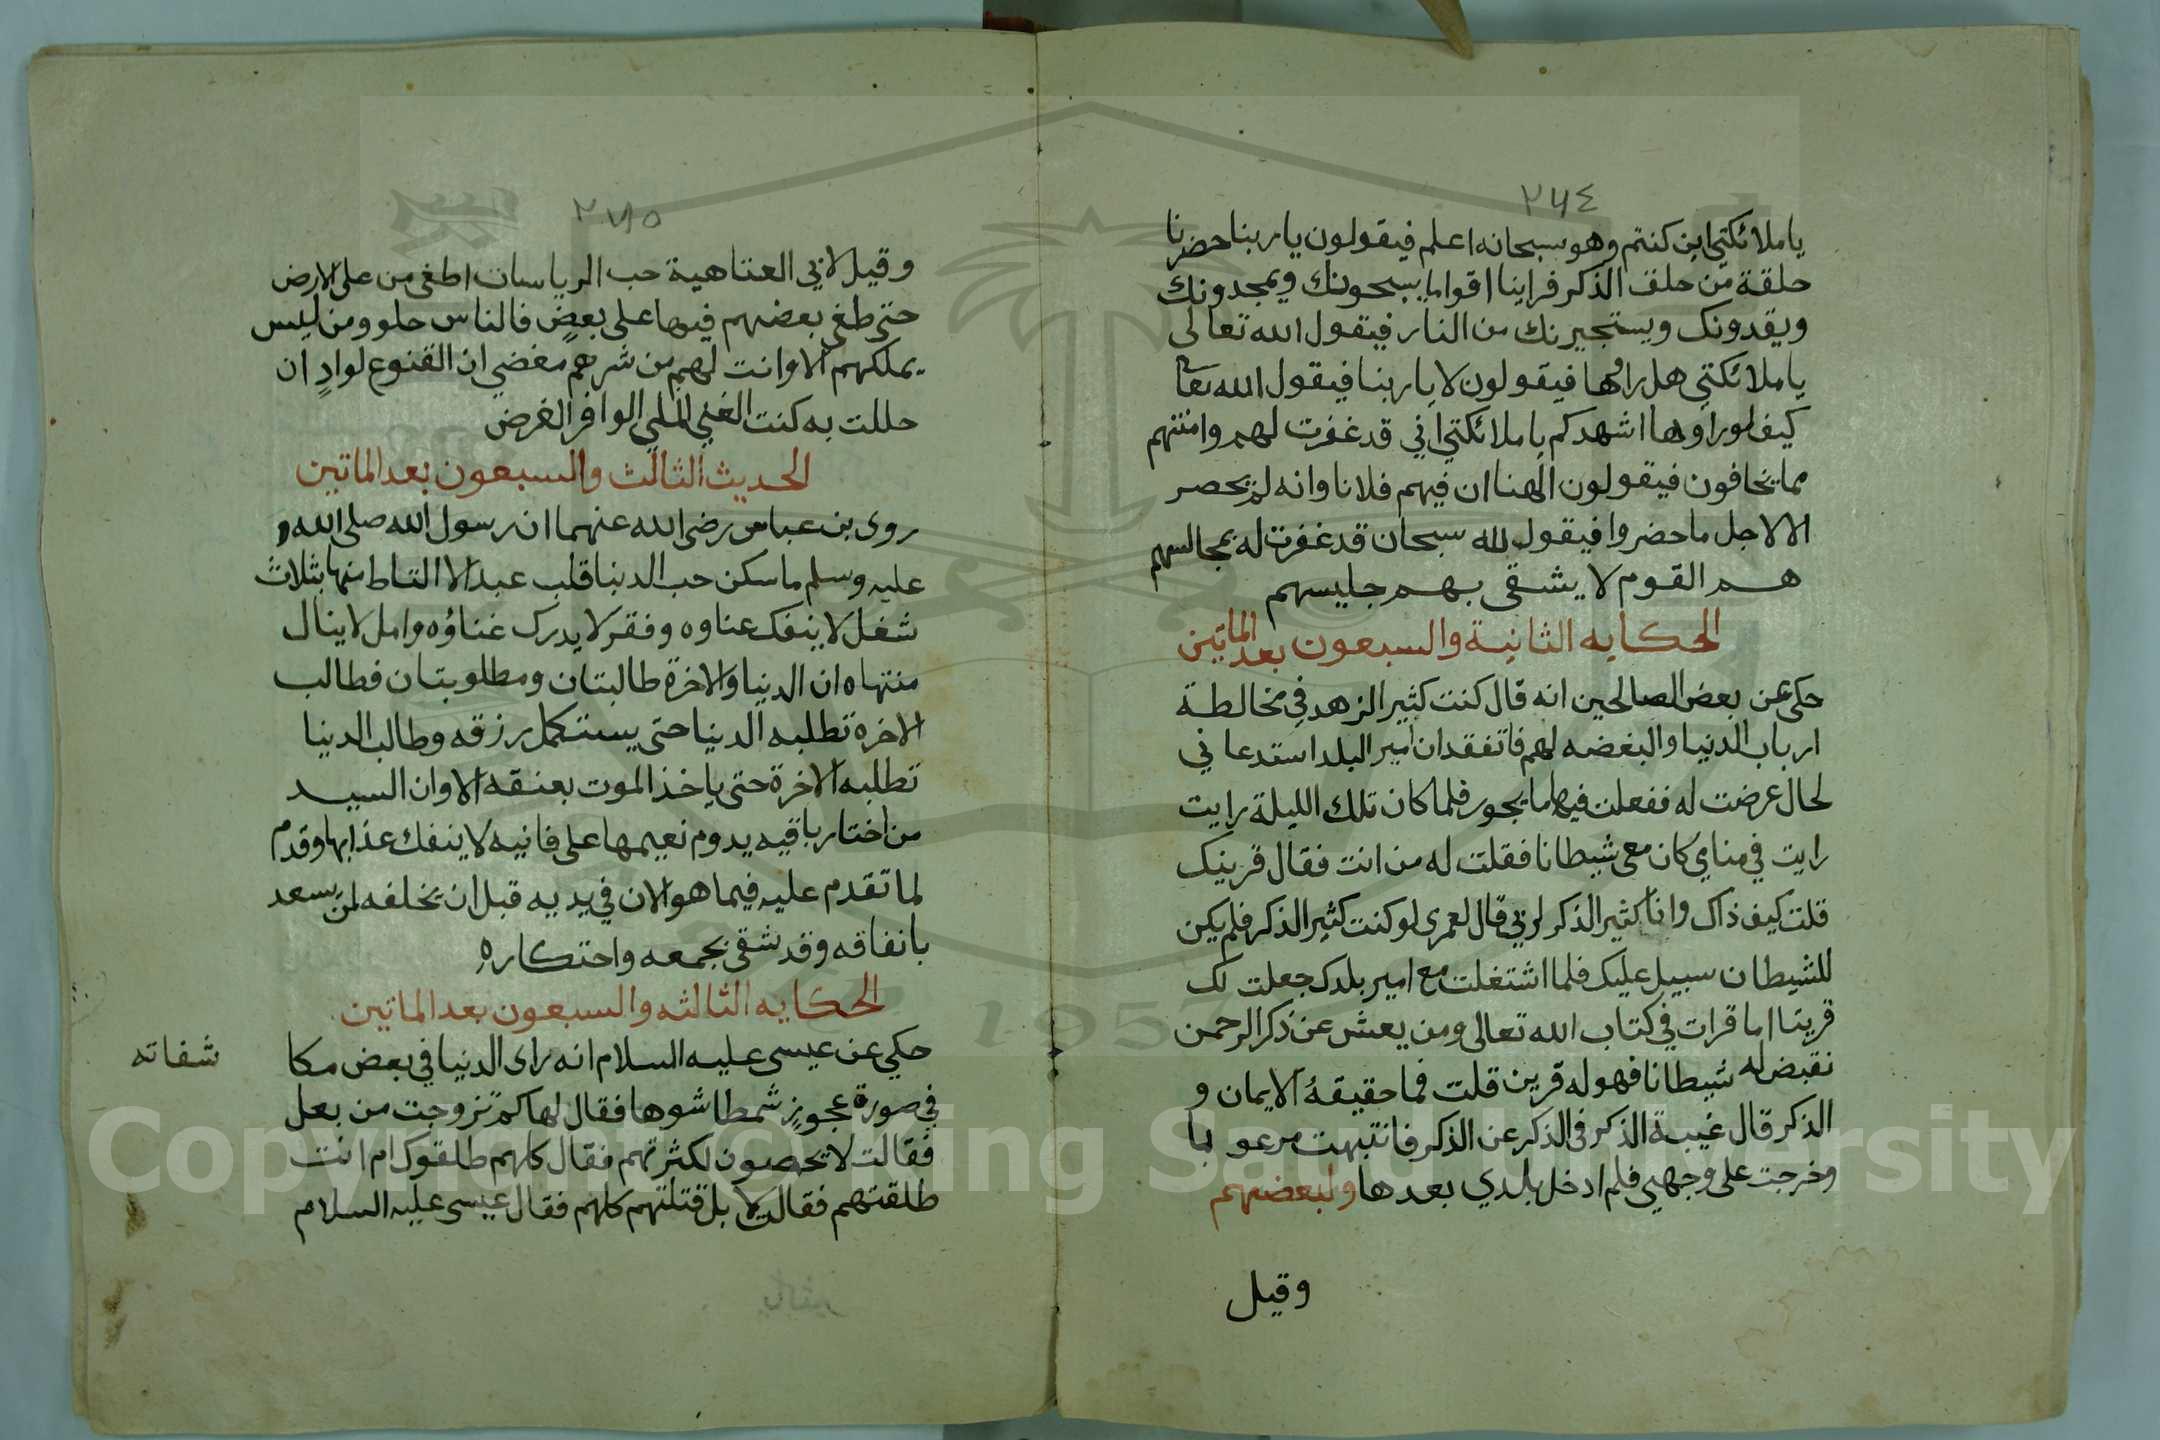 ٢٧٤
يا ملائكتي اين كنتم وهو سبحانه اعلم فيقولون يا ربنا حضرنا
حلقة من حلق الذكر فراينا اقواما يسبحونك ويمجدونك
ويقدونك ويستجيرنك من النار فيقول الله تعالى
يا ملائكتي هل راوها فيقولون لا يا ربنا فيقول الله تعا
كيف لوراوها اشهدكم يا ملائكتي اني قد غفرت لهم وامنتهم
مما يخافون فيقولون الهنا ان فيهم فلانا وانه لم يحصر
الا لاجل ما حضروا فيقول لله سبحان قد غفرت له بمجالسهم
هم القوم لا يشقى بهم جليسهم
الحكايه الثانية والسبعون بعد الماتين
حكى عن بعض الصالحين انه قال كنت كثير الزهد في مخالطة
ارباب الدنيا والبغضه لهم فاتفقد ان امير البلد استدعاني
لحال عرضت له ففعلت فيها ما يجور فلما كان تلك الليلة رايت
رايت في منامي كان معى شيطانا فقلت له من انت فقال قرينك
قلت كيف ذاك وانا كثير الذكر لربي قال لعمرى لو كنت كثير الذكر فلم يكن
للشيطان سبيل عليك فلما اشتغلت مع امير بلدك جعلت لك
قرينا اما قرات في كتاب الله تعالى ومن يعش عن ذكر الرحمن
نقيض له شيطانا فهو له قرين قلت فما حقيقة الايمان و
الذكر قال غيبة الذكر فى الذكر عن الذكر فانتبهت مرعوبا
وخرجت على وجهي فلم ادخل بلدي بعدها ولبعضهم
وقيل
٢٧٥
وقيل لابي العتاهية حب الرياسات اطغى من على الارض
حتى طغى بعضهم فيها على بعض فالناس حلو ومن ليس
يملكهم الا وانت لهم من شرهم مغضي ان القنوع لوادٍ ان
حللت به كنت الغني الملي الوافر الغرض
الحديث الثالث والسبعون بعد الماتين
روى بن عباس رضى الله عنهما ان رسول الله صلى الله
عليه وسلم ما سكن حب الدنيا قلب عبد الا التاط منها بثلاث
شغل لا ينفك عناوه وفقر لا يدرك غناؤه وامل لا ينال
منتهاه ان الدنيا والاخرة طالبتان ومطلوبتان فطالب
الاخرة تطلبه الدنيا حتى يستكمل رزقه وطالب الدنيا
تطلبه الاخرة حتى ياخذ الموت بعنقه الا وان السيد
من اختار باقيه يدوم نعيمها على فانيه لا ينفك عذابها وقدم
لما تقدم عليه فيما هو الان في يديه قبل ان يخلفه لمن يسعد
بانفاقه وقد شقى بجمعه واحتكاره
الحكايه الثالثه والسبعون بعد الماتين
حكي عن عيسى عليه السلام انه راى الدنيا في بعض مكا
شفاته
في صورة عجوز شمطا شوها فقال لها كم تزوجت من بعل
فقالت لا يحصون لكثرتهم فقال كلهم طلقوك ام انت
طلقتهم فقالت لا بل قتلتهم كلهم فقال عيسى عليه السلام
Copyright © King Saud University
1957